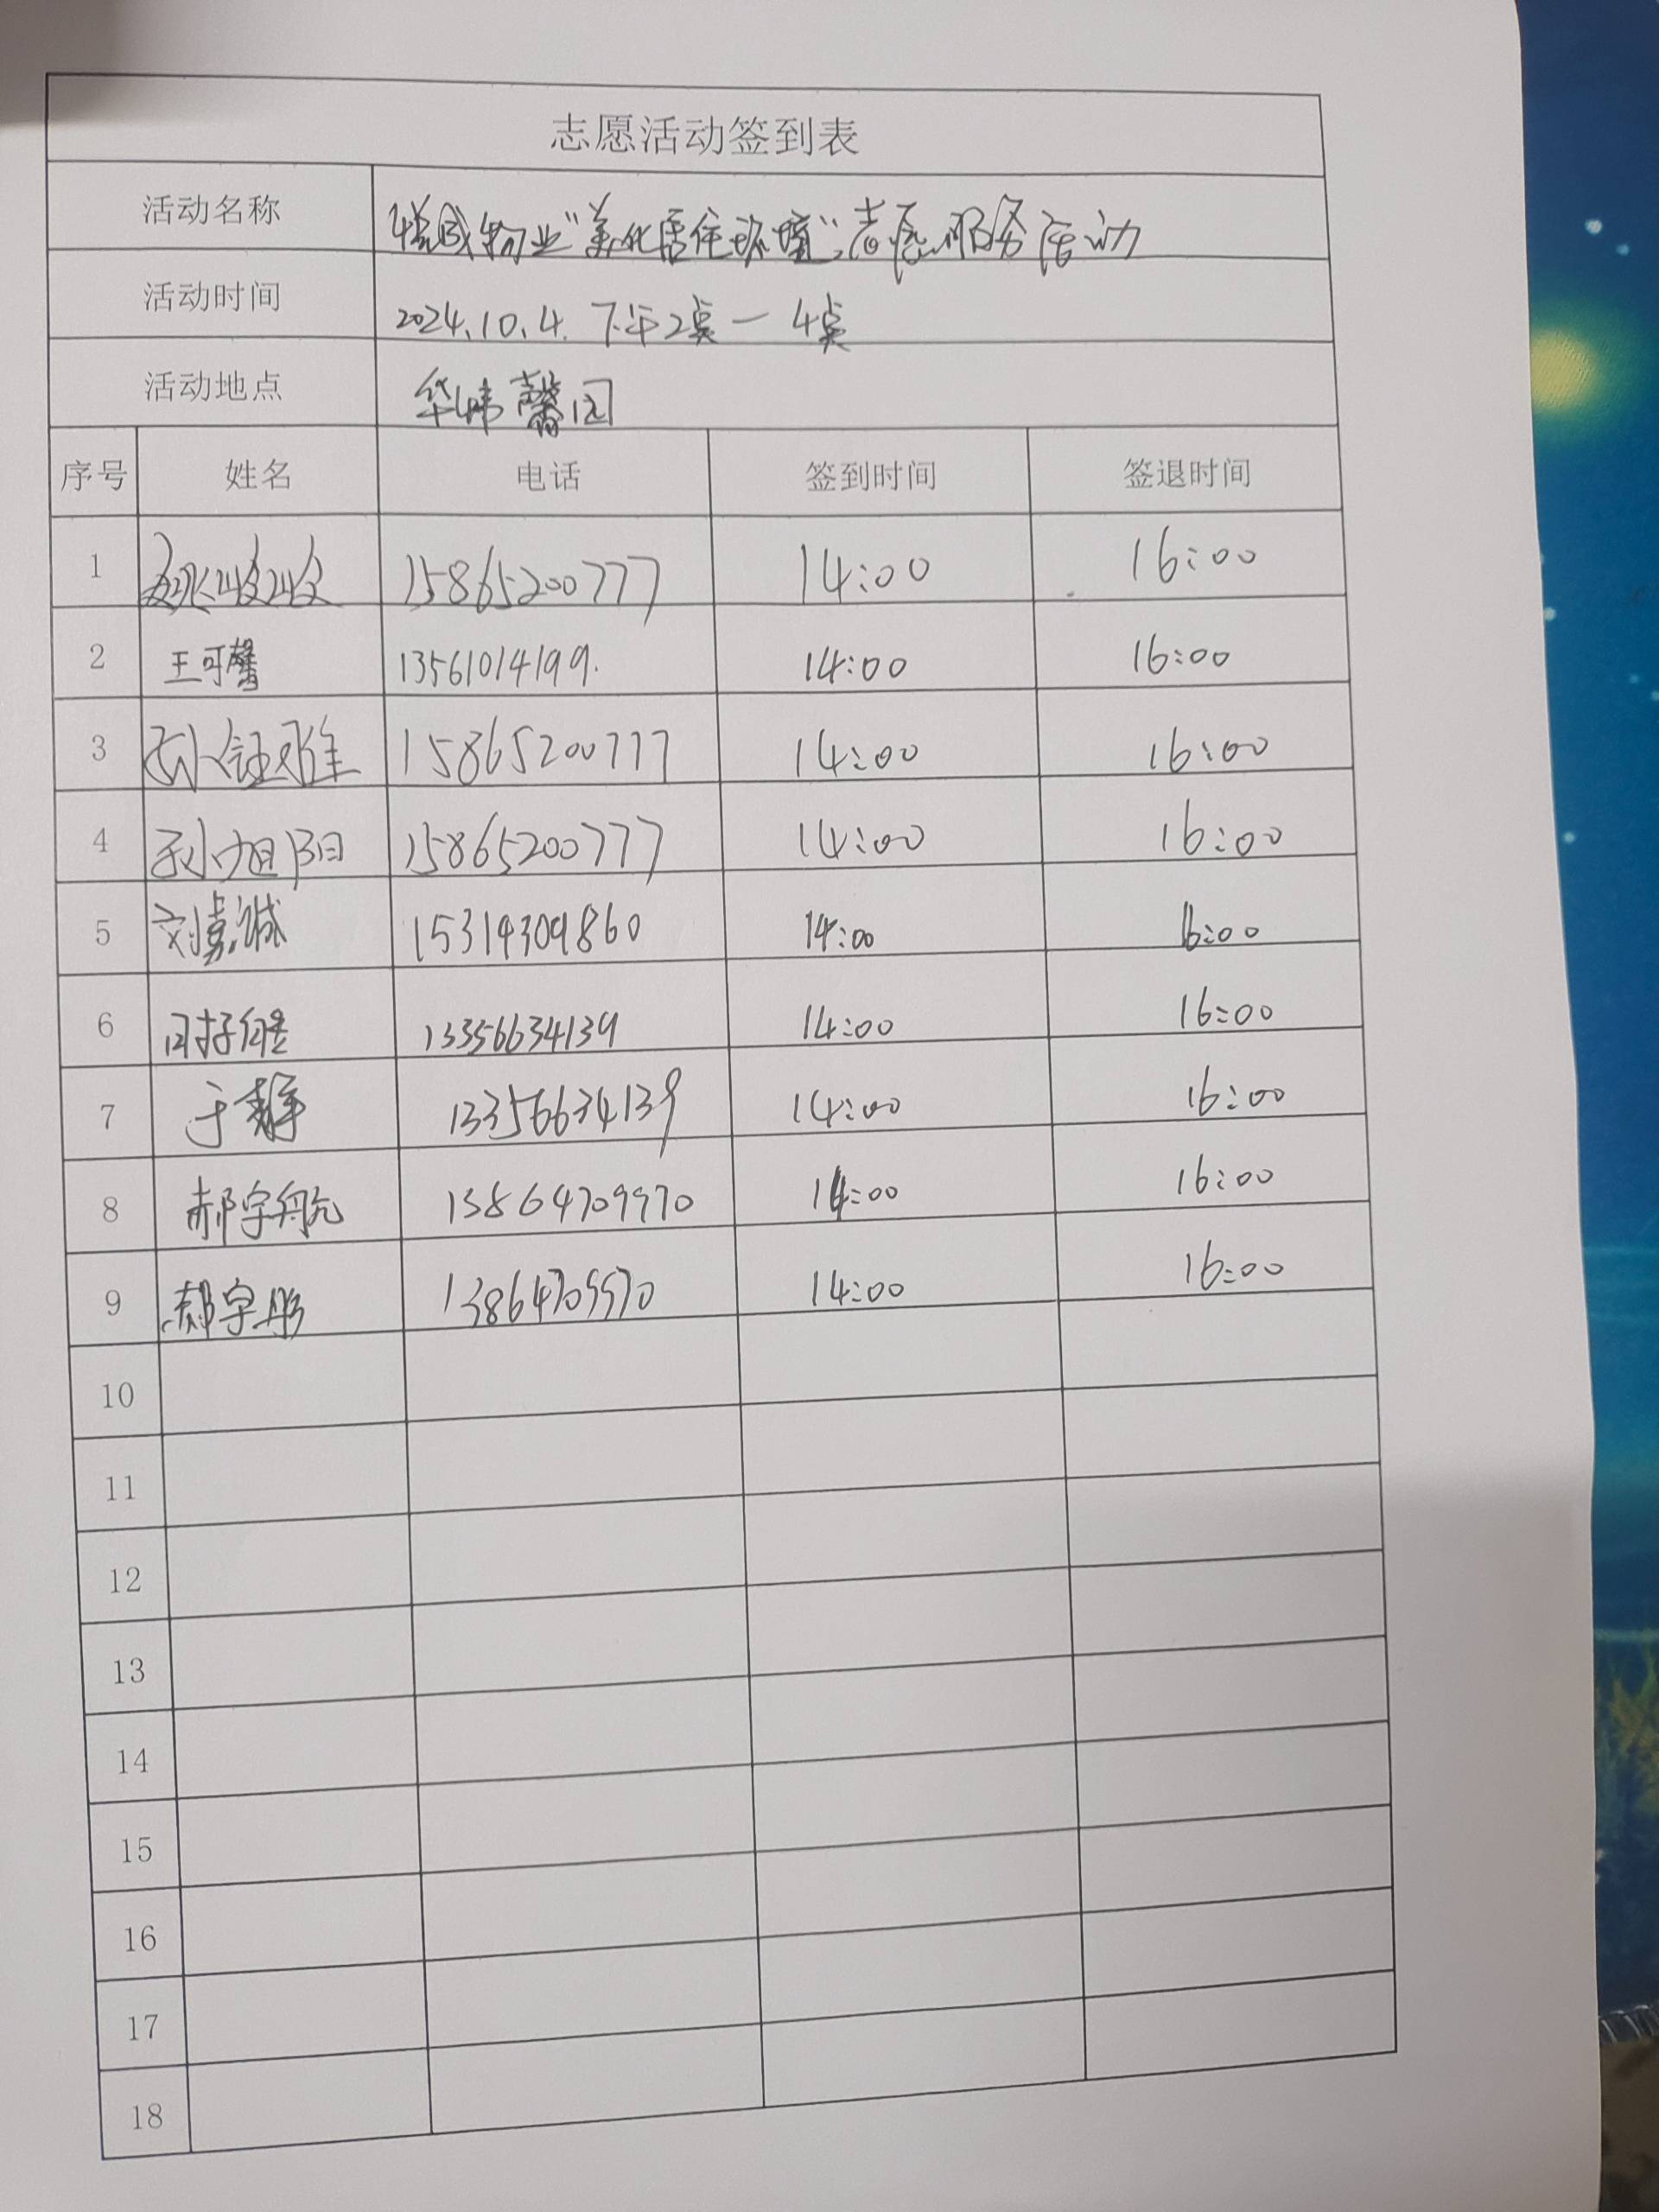 志愿活动签到表
活动名称 物业“美化居住环境”志愿服务活动
活动时间 2024.10.4. 下午2点一4点
活动地点 华炜馨园
序号 姓名 电话 签到时间 签退时间
1 15865200777 14:00 16:00
2 王可馨 13561014199. 14:00 16:00
3 孙钰雅 15865200777 14:00 16:00
4 孙旭阳 15865200777 14:00 16:00
5 刘嘉诚 15314309860 14:00 16:00
6 13356634139 14:00 16:00
7 于静 13356634139 14:00 16:00
8 郝宇航 13864709970 14:00 16:00
9 郝宇彤 13864709970 14:00 16:00
10
11
12
13
14
15
16
17
18